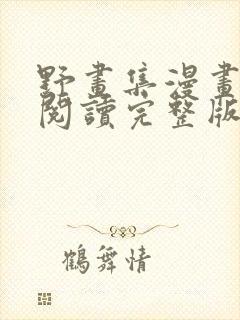 野畫集漫畫
閱讀完整版
鶴舞情